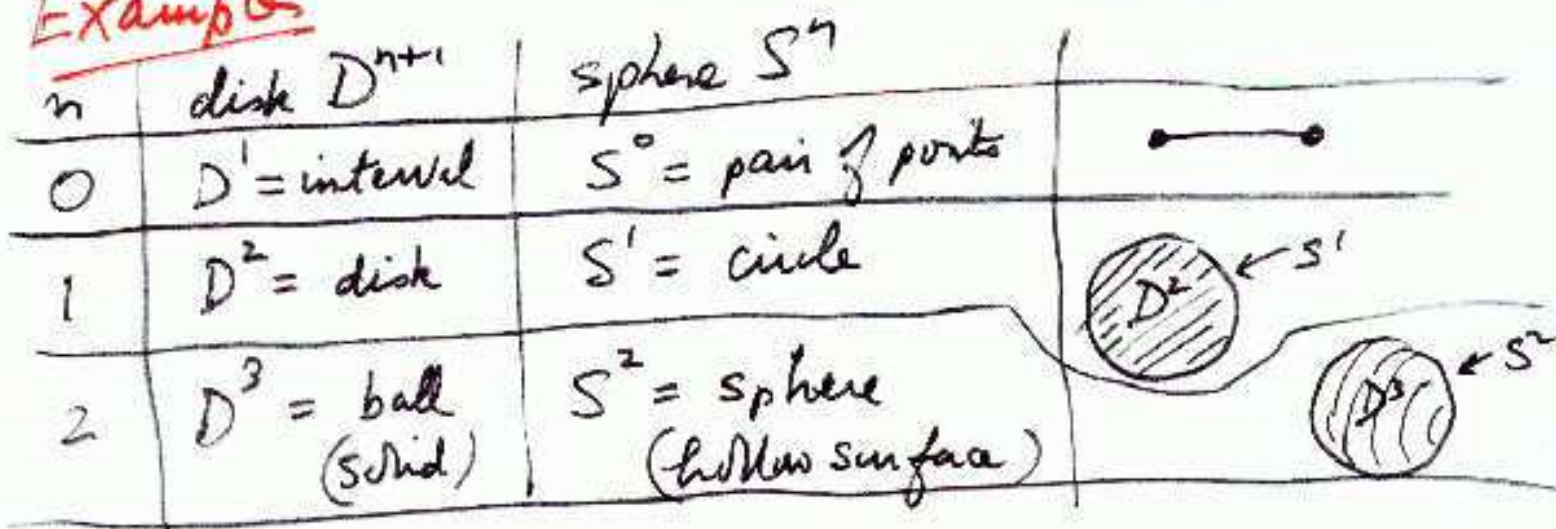 Examples
n disk Dⁿ⁺¹ sphere Sⁿ
0 D¹ = interval S⁰ = pair of points
1 D² = disk S¹ = circle D² ← S¹
2 D³ = ball (solid) S² = sphere (hollow surface) D³ ← S²